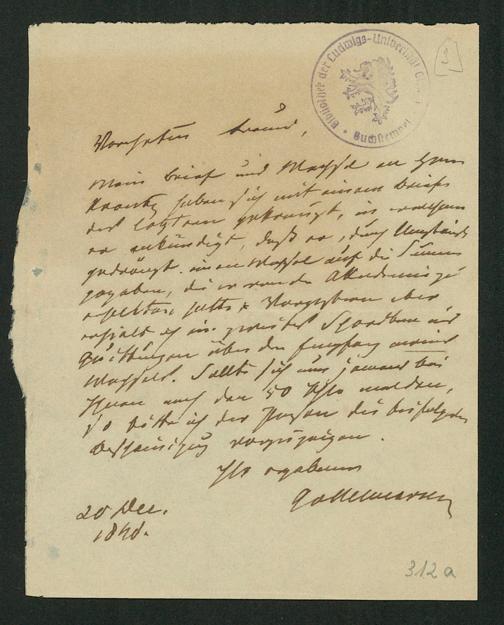 Bibliothek der Ludwigs-Universität
Buchstempel
Verehrter Freund,
Mein Brief und Wechsel an Herrn
haben sich mit einem Briefe
des letztern gekreuzt, in welchem
er ankündigt, daß er, durch Umstände
gedrängt einen Wechsel auf die Summe
gegeben, die er von der Akademie zu
erhalten hatte Vorgestern aber
erhielt ich ein zweites Schreiben
Quittungen über den Empfang meines
Wechsels. Sollte sich nun jemand bei
Ihnen nach den 50 Thlr melden,
so bitte ich der Person die beifolgende
Bescheinigung vorzuzeigen.
Ihr ergebener
20 Dec.
312a